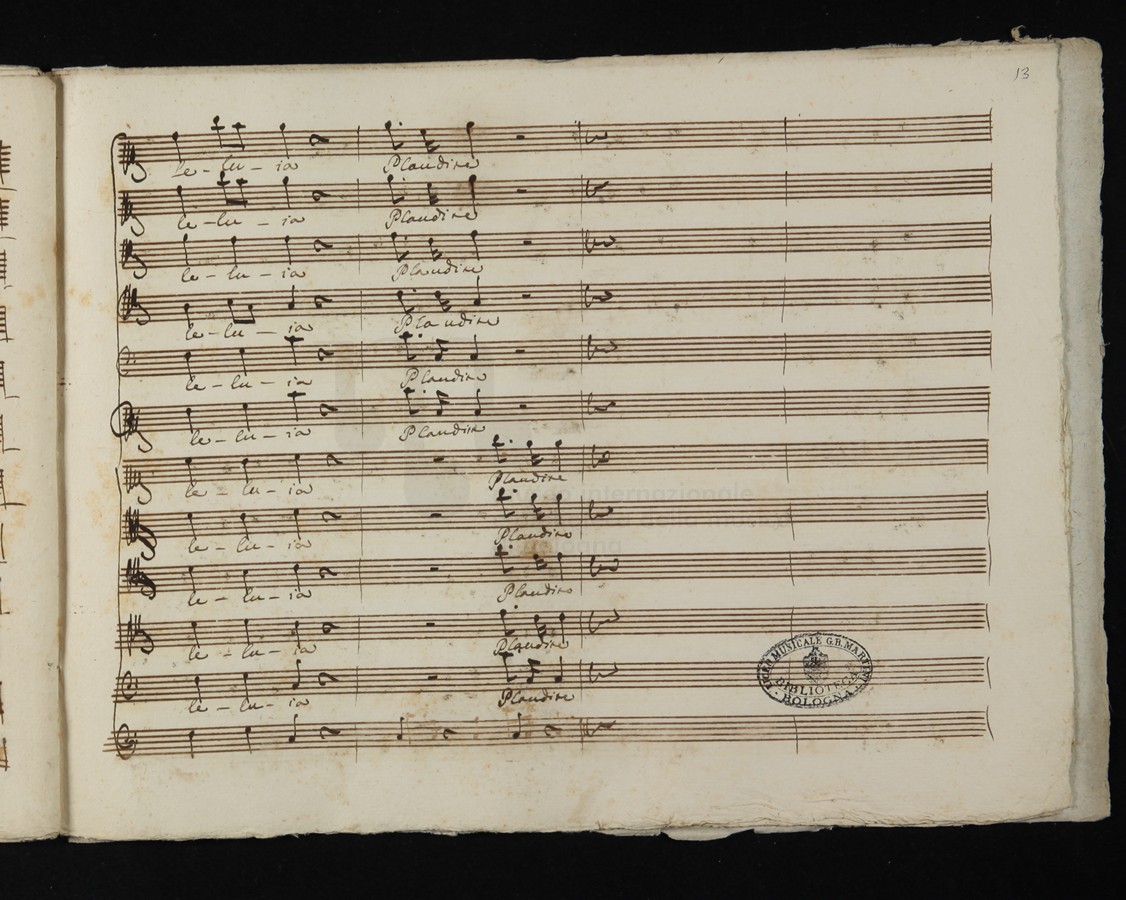 13
le - lu - ia Plaudite
le - lu - ia Plaudite
le - lu - ia Plaudite
le - lu - ia Plaudite
le - lu - ia Plaudite
le - lu - ia Plaudite
le - lu - ia Plaudite
le - lu - ia Plaudite
le - lu - ia Plaudite
le - lu - ia Plaudite
le - lu - ia Plaudite
internazionale
LICEO MUSICALE G.B. MARTINI
BIBLIOTECA
BOLOGNA